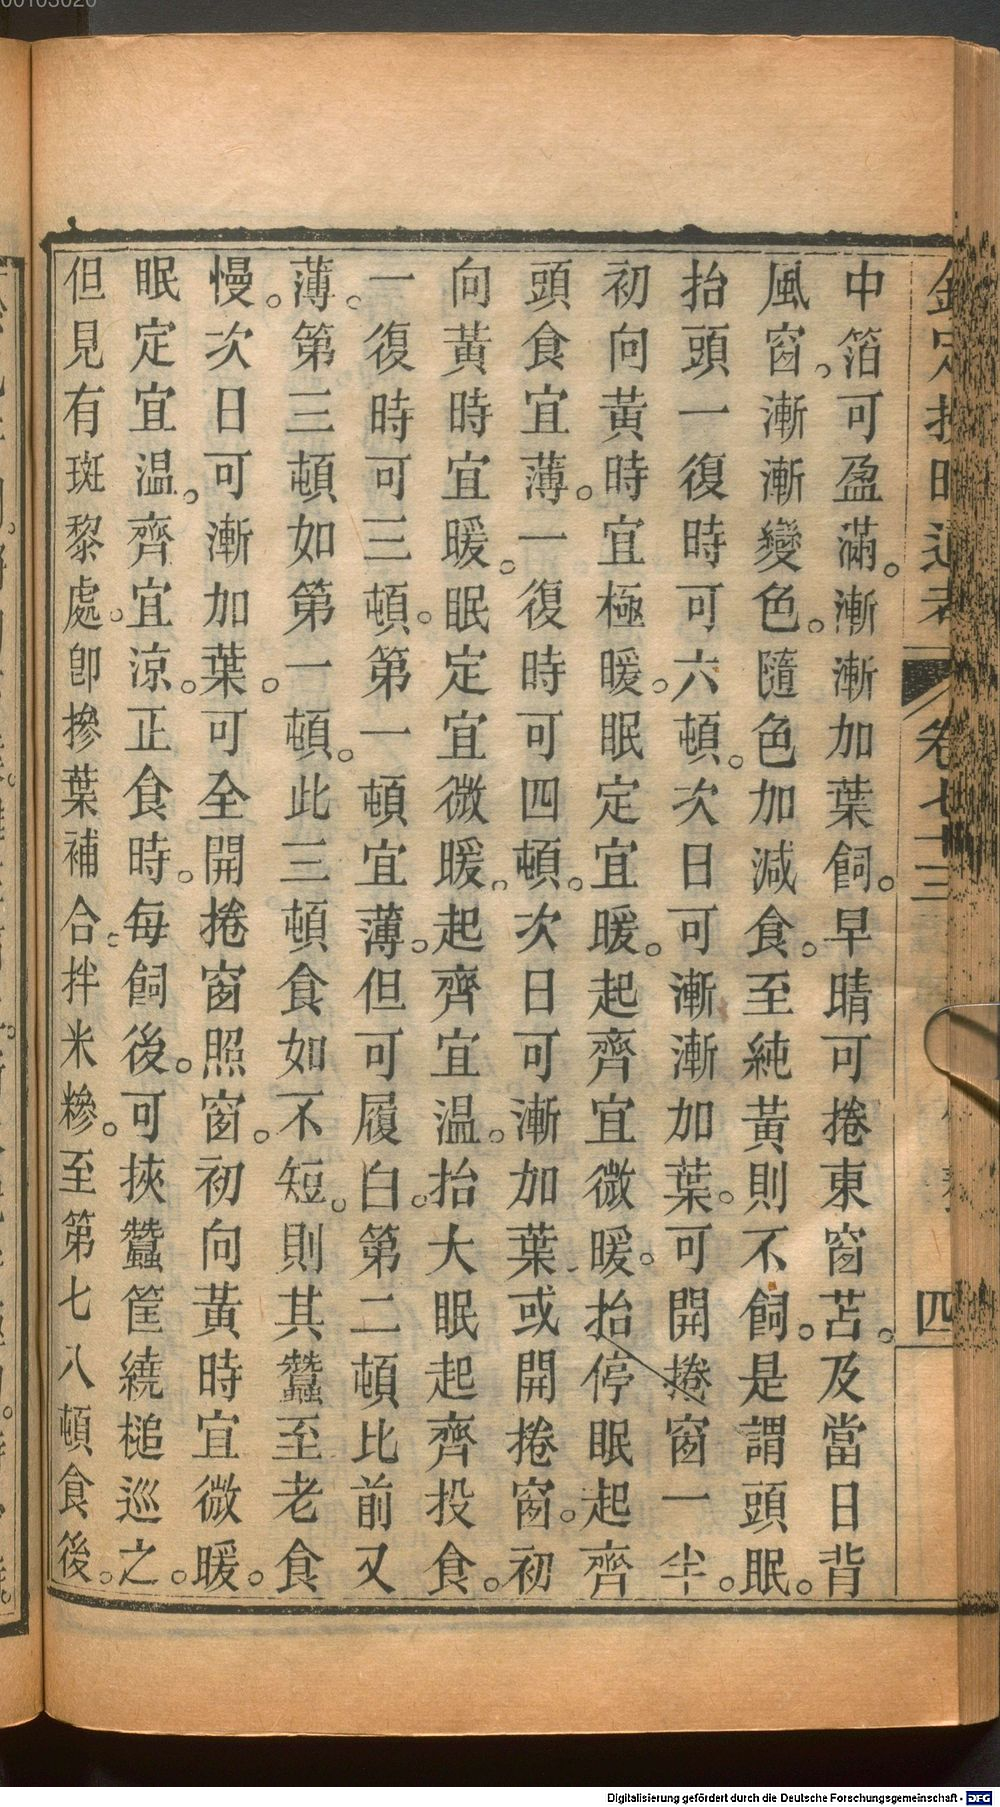 中箔可盈滿。漸漸加葉飼。早晴可捲東窗苫。及當日背
風窗。漸漸變色。隨色加減食。至純黃則不飼。是謂頭眠。
抬頭一復時可六頓。次日可漸漸加葉。可開捲窗一半。
初向黃時宜極暖。眠定宜暖。起齊宜微暖。抬停眠起齊
頭食宜薄。一復時可四頓。次日可漸加葉。或開捲窗。初
向黃時宜暖。眠定宜微暖。起齊宜溫。抬大眠起齊投食。
一復時可三頓。第一頓宜薄。但可履白。第二頓比前又
薄。第三頓如第一頓。此三頓食如不短。則其蠶至老食
慢。次日可漸加葉。可全開捲窗照窗。初向黃時宜微暖。
眠定宜溫。齊宜涼。正食時。每飼後。可挾蠶筐繞槌巡之。
但見有斑黎處。卽摻葉補合。拌米糝。至第七八頓食後。
卷七十三
四
00103020
Digitalisierung gefördert durch die Deutsche Forschungsgemeinschaft - DFG